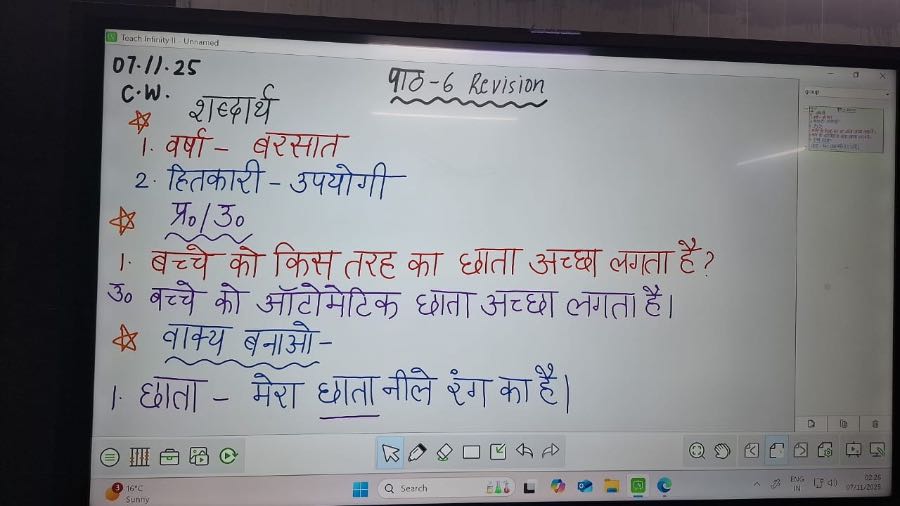 Teach Infinity II - Unnamed
07.11.25
पाठ-6 Revision
C.W.
शब्दार्थ
1. वर्षा - बरसात
2. हितकारी - उपयोगी
प्र०/उ०
1. बच्चे को किस तरह का छाता अच्छा लगता है?
उ० बच्चे को ऑटोमेटिक छाता अच्छा लगता है।
वाक्य बनाओ-
1. छाता - मेरा छाता नीले रंग का है।
group
3
16°C
Sunny
Search
ENG
IN
02:26
07/11/2025